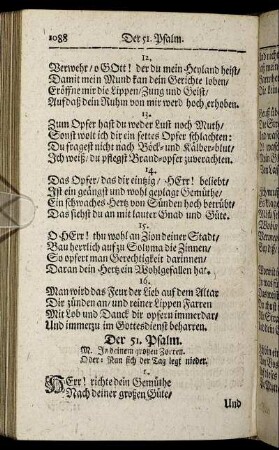 1088 Der 51. Psalm.
12.
Verwehr / o GOtt! der du mein-Heyland heist /
Damit mein Mund kan dein Gerichte loben /
Eröffne mir die Lippen / Zung und Geist /
Aufdaß dein Ruhm von mir werd hoch erhoben.
13.
Zum Opfer hast du weder Lust noch Muth /
Sonst wolt ich dir ein fettes Opfer schlachten:
Du fragest nicht nach Böck- und Kälber-blut /
Ich weiß / du pflegst Brand-opfer zuverachten.
14.
Das Opfer / das dir eintzig / HErr! beliebt /
Ist ein geängst und wohl geplagt Gemüthe /
Ein schwaches Hertz von Sünden hoch betrübt /
Das siehst du an mit lauter Gnad und Güte.
15.
O HErr! thu wohl an Zion deiner Stadt /
Bau herrlich auf zu Solyma die Zinnen /
So opfert man Gerechtigkeit darinnen /
Daran dein Hertz ein Wohlgefallen hat.
16.
Man wird das Feur der Lieb auf dem Altar
Dir zünden an / und reiner Lippen Farren
Mit Lob und Danck dir opfern immerdar /
Und immerzu im Gottesdienst beharren.
Der 51. Psalm.
M. In deinem großen Zorren.
Oder: Nun sich der Tag legt nieder.
1.
HErr! richte dein Gemüthe
Nach deiner großen Güte /
Und